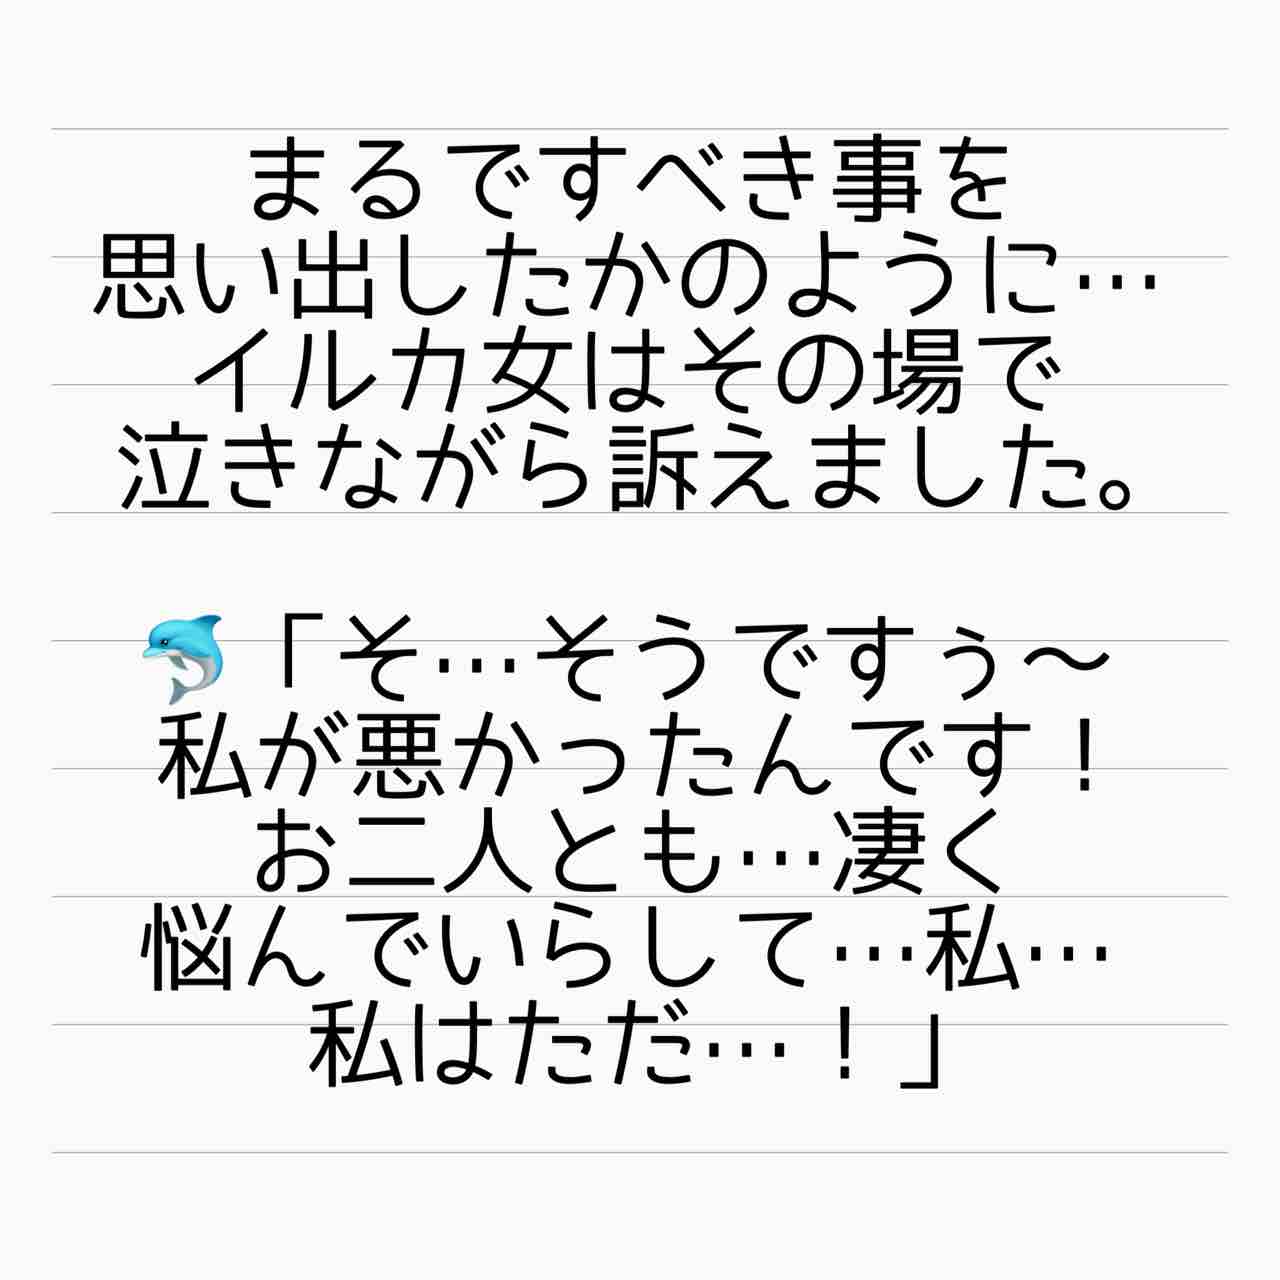 まるですべき事を
思い出したかのように…
イルカ女はその場で
泣きながら訴えました。
🐬「そ…そうですぅ〜
私が悪かったんです！
お二人とも…凄く
悩んでいらして…私…
私はただ…！」